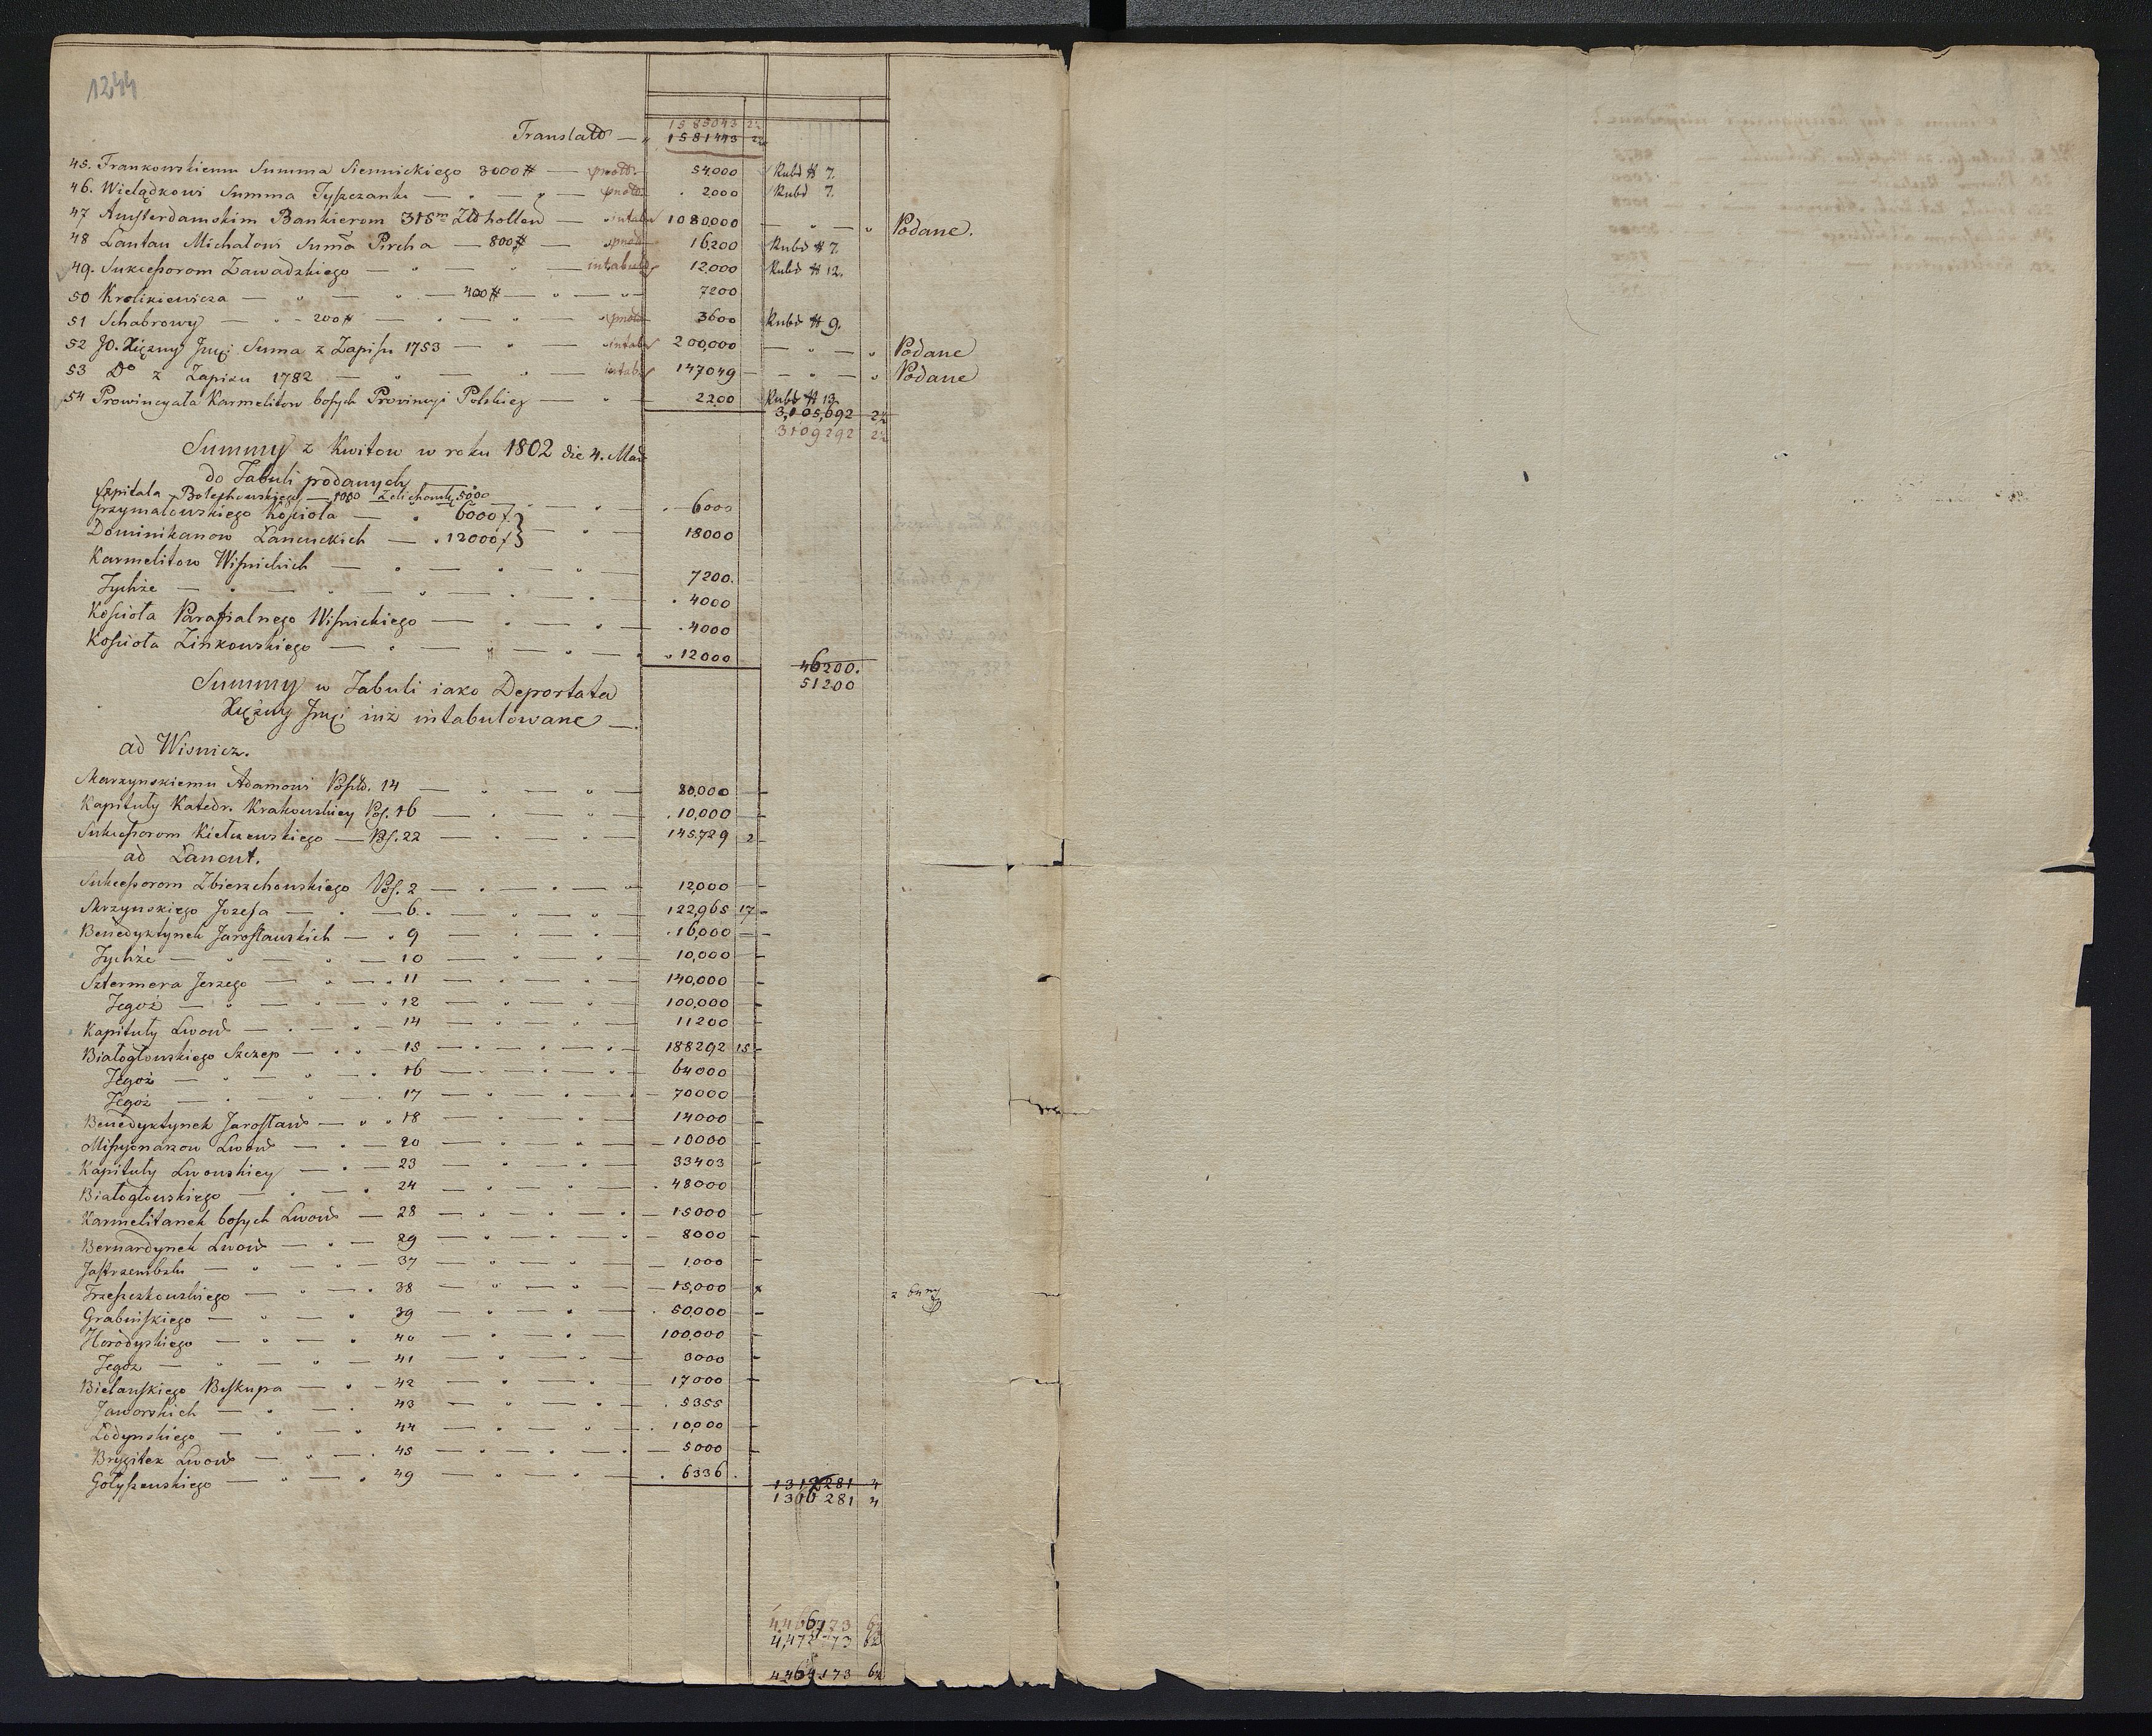 1244
1585043 2½
Translato — " 1581443 2½
45. Frankowskiemu Summa Siennickiego 3000 # — pnotd. 54,000 Rubd # 7.
46. Wielądkowi Summa Tyszczanki — " — " — pnotd. 2000 Rubd 7.
47 Amsterdamskim Bankierom 315m Zld hollend — intabd 1080,000 — " — " Podane.
48 Lantau Michałowi Suma Pircha — 800 # — pnotd 16,200 Rubd # 7.
49. Sukcessorom Zawadzkiego — " — " — intabuld 12,000 Rubd # 12.
50 Krolikiewicza — " — " — 400 # — " — " 7200
51 Schabrowy — " - 200 # — " — " — pnotd 3600 Rubd # 9.
52 JO. Xiężny Jmci Suma z Zapisu 1753 — " — intabd 200,000 — " — " Podane
53 Do z Zapisu 1782 — " — " — intabd 147049 — " — " Podane
54 Prowincyała Karmelitow bosych Prowincyi Polskiey — " 2200 Rubd # 13.
3,105,692 2½
3109292 2½
Summy z Kwitow w roku 1802 die 4. Maii
do Tabuli podanych
Szpitala Bolechowskiego — 1000 5000
Grzymałowskiego Kościoła — " 6000 f. — " 6000
Dominikanow Lancuckich — " 12000 f — " — 18000
Karmelitow Wiśnickich — " — " — " — 7200.
Tychże — " — " — " — " 4000
Kościoła Parafialnego Wiśnickiego — " — " — 4000
Kościoła Zinkowskiego — " — " — " — " 12000
46200.
51200
Summy w Tabuli iako Deportata
Xiężny Jmci iuż intabulowane —
ad Wisnicz.
Marzynskiemu Adamowi 14 — " — " — 80,000 —
Kapituły Katedr. Krakowskiey Pos. 16 — " — " 10,000 —
Sukcessorom Kiełczewskiego — Pos. 22 — " — " — 145,729 2 —
ad Lancut.
Sukcessorom Zbierzchowskiego Pos. 2 — " — " — " 12,000 —
Skrzynskiego Jozefa — " — 6. — " — " — 122,965 17 —
Benedyktynek Jarosławskich — " 9 — " — " — 16,000 —
Tychże — " — " — 10 — " — " — 10,000 —
Sztermera Jerzego — " — " 11 — " — " — 140,000 —
Tegoż — " — " 12 — " — " — 100,000 —
Kapituły Lwows — " — " — 14 — " — " — 11200 —
Białogłowskiego Szczep — " " — 15 — " — " — 188292 15 —
Tegoż — " — " — " 16 — " — " — 64000 —
Tegoż — " — " — " 17 — " — " — 70000 —
Benedyktynek Jarosław — " " 18 — " — " — 14000 —
Missyonarzow Lwow — " — 20 — " — " — 10000 —
Kapituły Lwowskiey — " — 23 — " — " — 33403 —
Białogłowskiego — " — " 24 — " — " — 48000 —
Karmelitanek bosych Lwow — 28 — " — " — 15000 —
Bernardynek Lwow — " — 29 — " — " — 8000 —
Jastrzembsk — " — " — 37 — " — " — 1,000 —
Trzeszczkowskiego — " — " 38 — " — " — 15,000 x
Grabińskiego — " — " 39 — " — " 50,000 —
Horodyskiego — " — " 40 — " — " — 100,000 —
Tegoz — " — " — 41 — " — " — 3000 —
Bielańskiego Biskupa — " — 42 — " — " — 17000 —
Jaworskich — " — " 43 — " — " 5355 —
Łodynskiego — " — " 44 — " — " 10,000 —
Brygitek Lwow — " — " 45 — " — " — 5000 —
Gołyszewskiego — " — " 49 — " — " 6336
1312281 4
1306281 4
4,466,773
4,472,773
4464,173